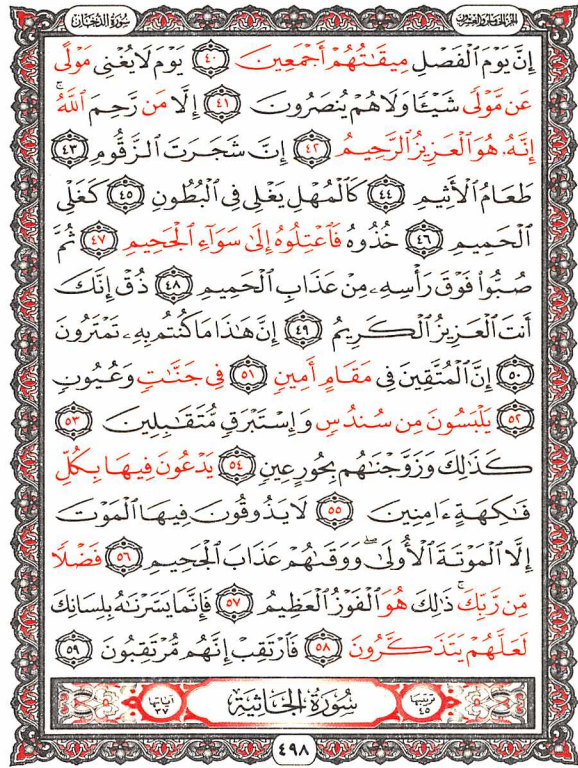 الجزء الخامس والعشرون
سورة الدخان
إِنَّ يَوْمَ الْفَصْلِ مِيقَٰتُهُمْ أَجْمَعِينَ ٤٠ يَوْمَ لَا يُغْنِى مَوْلًى
عَن مَّوْلًى شَيْـًٔا وَلَا هُمْ يُنصَرُونَ ٤١ إِلَّا مَن رَّحِمَ اللَّهُ ۚ
إِنَّهُۥ هُوَ الْعَزِيزُ الرَّحِيمُ ٤٢ إِنَّ شَجَرَتَ الزَّقُّومِ ٤٣
طَعَامُ الْأَثِيمِ ٤٤ كَالْمُهْلِ يَغْلِى فِى الْبُطُونِ ٤٥ كَغَلْىِ
الْحَمِيمِ ٤٦ خُذُوهُ فَاعْتِلُوهُ إِلَىٰ سَوَآءِ الْجَحِيمِ ٤٧ ثُمَّ
صُبُّوا۟ فَوْقَ رَأْسِهِۦ مِنْ عَذَابِ الْحَمِيمِ ٤٨ ذُقْ إِنَّكَ
أَنتَ الْعَزِيزُ الْكَرِيمُ ٤٩ إِنَّ هَٰذَا مَا كُنتُم بِهِۦ تَمْتَرُونَ
٥٠ إِنَّ الْمُتَّقِينَ فِى مَقَامٍ أَمِينٍ ٥١ فِى جَنَّٰتٍ وَعُيُونٍ
٥٢ يَلْبَسُونَ مِن سُندُسٍ وَإِسْتَبْرَقٍ مُّتَقَٰبِلِينَ ٥٣
كَذَٰلِكَ وَزَوَّجْنَٰهُم بِحُورٍ عِينٍ ٥٤ يَدْعُونَ فِيهَا بِكُلِّ
فَٰكِهَةٍ ءَامِنِينَ ٥٥ لَا يَذُوقُونَ فِيهَا الْمَوْتَ
إِلَّا الْمَوْتَةَ الْأُولَىٰ ۖ وَوَقَىٰهُمْ عَذَابَ الْجَحِيمِ ٥٦ فَضْلًا
مِّن رَّبِّكَ ۚ ذَٰلِكَ هُوَ الْفَوْزُ الْعَظِيمُ ٥٧ فَإِنَّمَا يَسَّرْنَٰهُ بِلِسَانِكَ
لَعَلَّهُمْ يَتَذَكَّرُونَ ٥٨ فَارْتَقِبْ إِنَّهُم مُّرْتَقِبُونَ ٥٩
ترتيبها ٤٥ سُورَةُ الجَاثِيَةِ آياتها ٣٧
٤٩٨